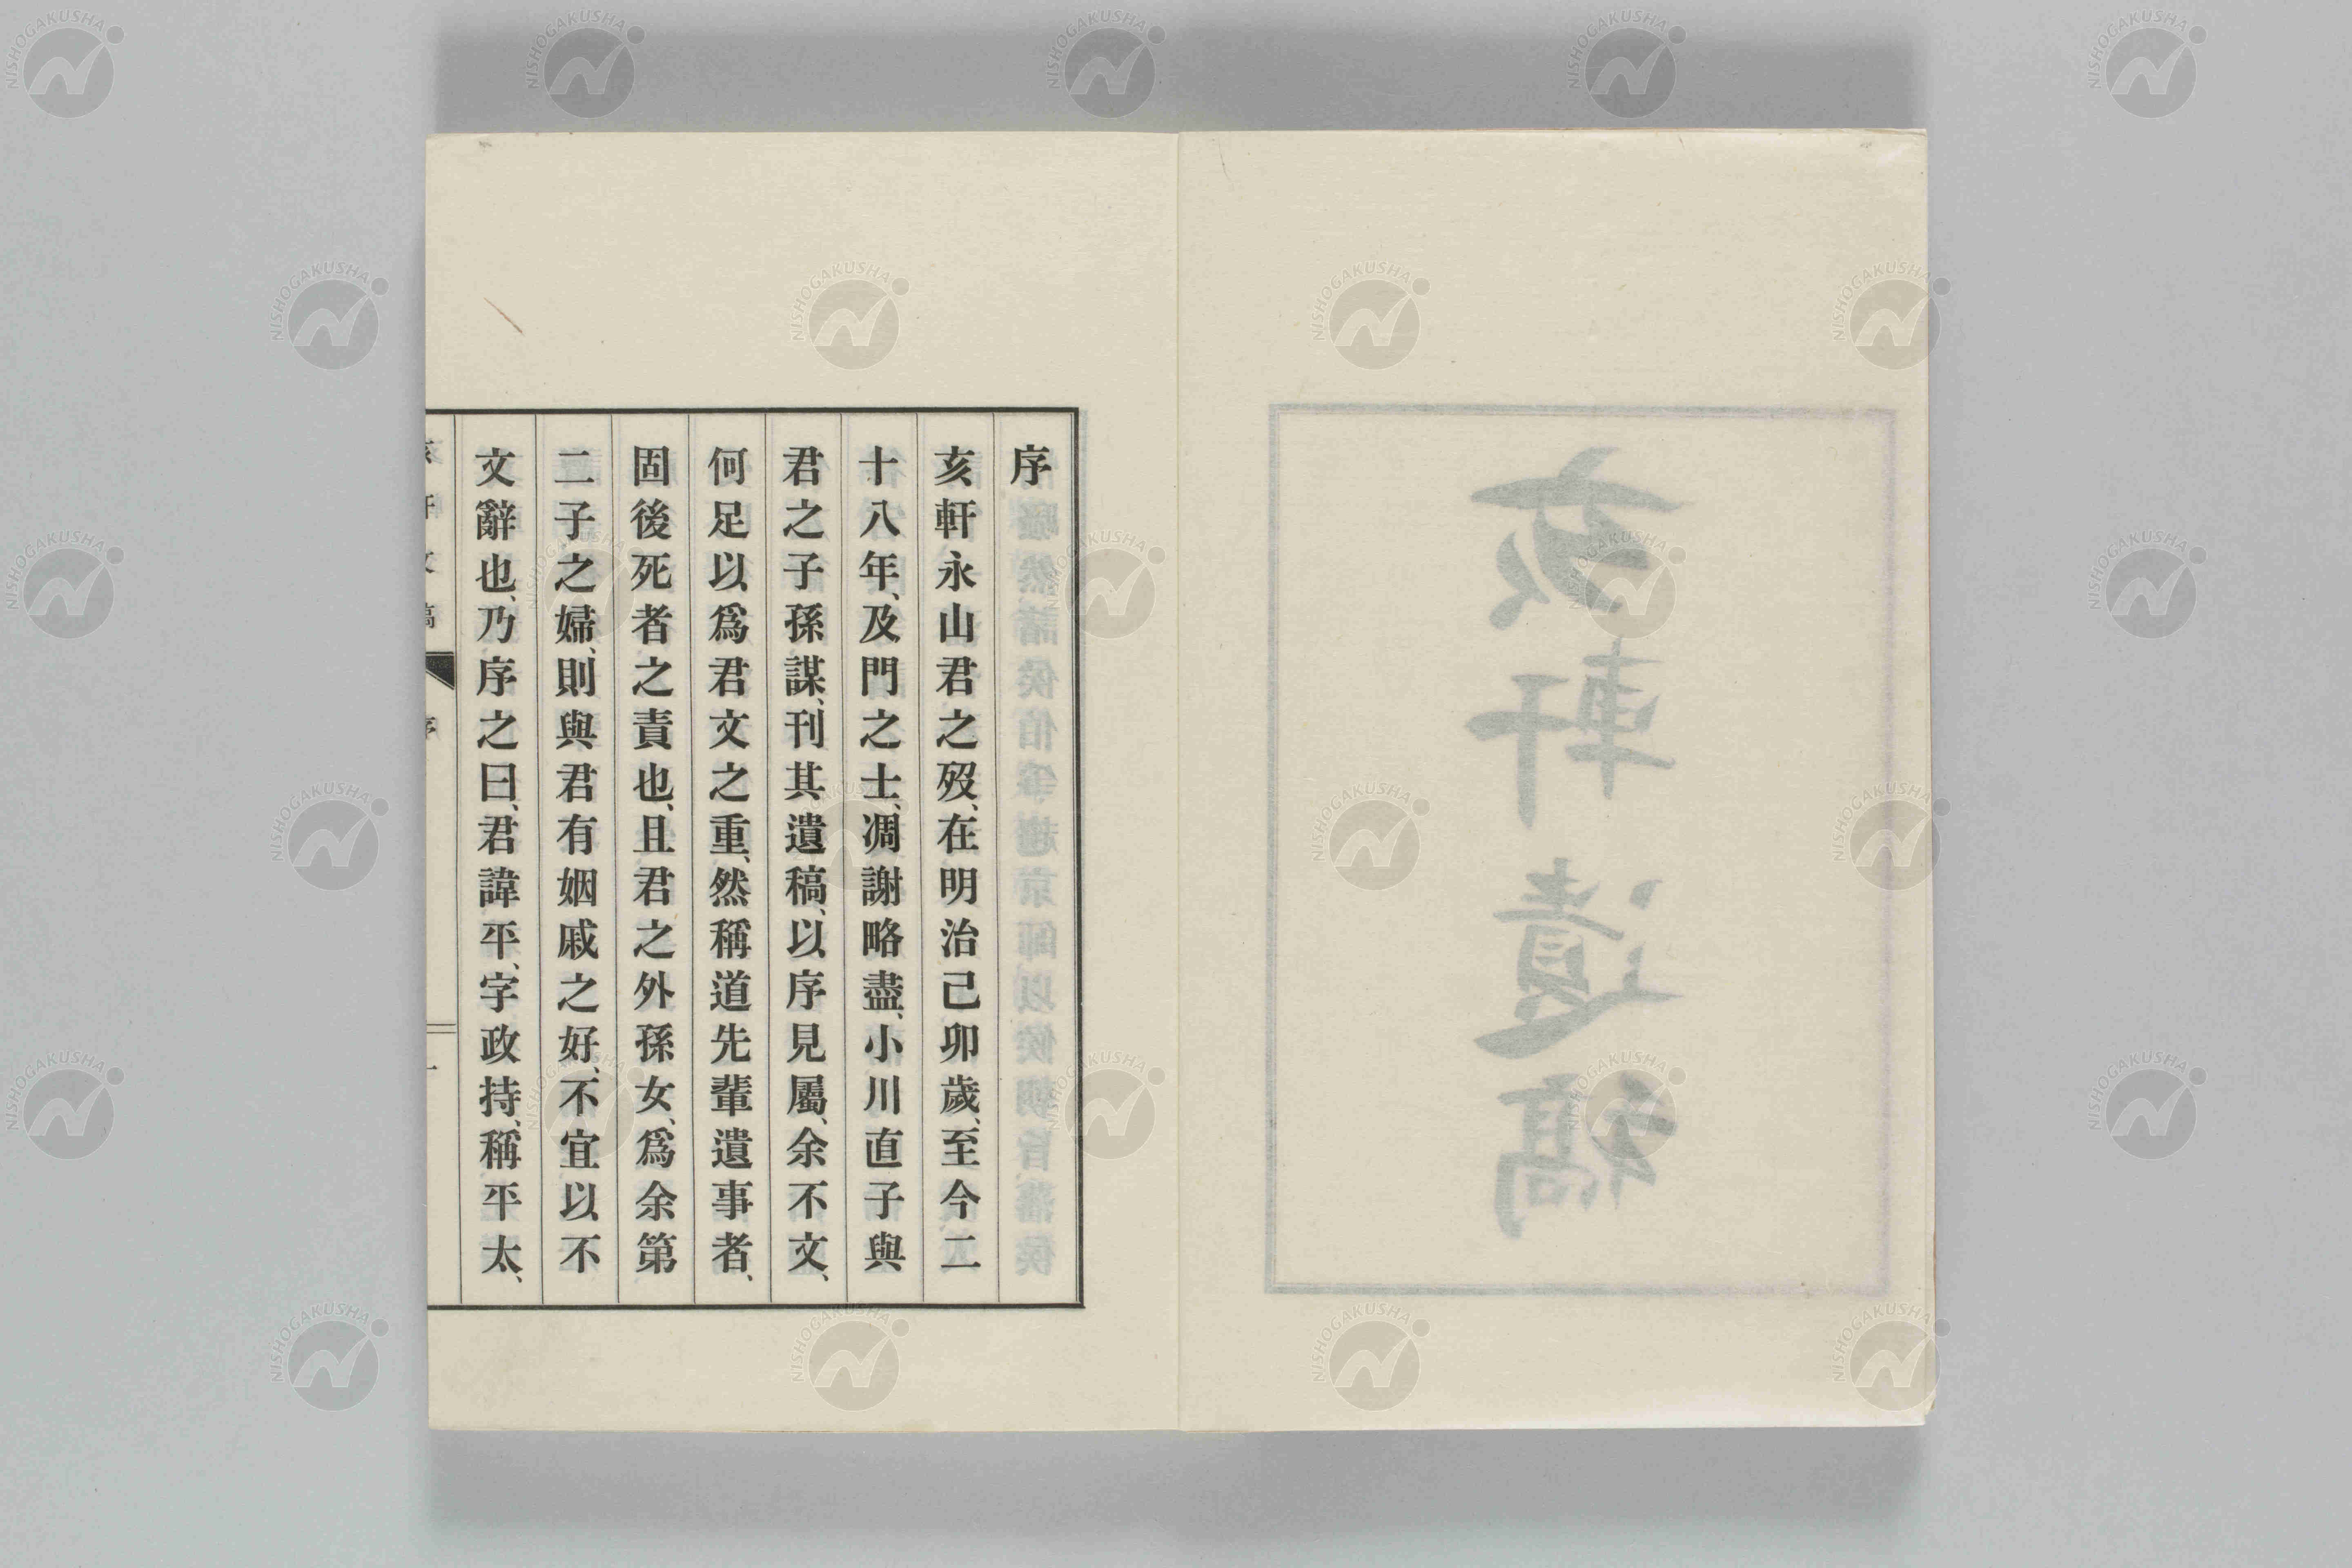 亥軒遺稿
序
亥軒永山君之歿、在明治己卯歲、至今二
十八年、及門之士、凋謝略盡、小川直子與
君之子孫謀、刊其遺稿、以序見屬、余不文、
何足以爲君文之重、然稱道先輩遺事者、
固後死者之責也、且君之外孫女、爲余第
二子之婦、則與君有姻戚之好、不宜以不
文辭也、乃序之曰、君諱平、字政持、稱平太、
NISHOGAKUSHA